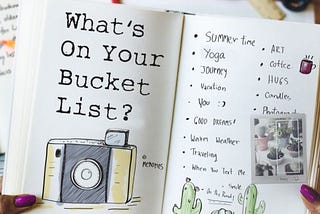 What's
On Your
Bucket
List?
MEMORIES
• Summer time
• Yoga
• Journey
• Vacation
• You :)
• GOOD DREAMS!
• Warm Weather
• Traveling
• When You Text Me
• Smile
• ART
• Coffee
• HUGS
• Candles